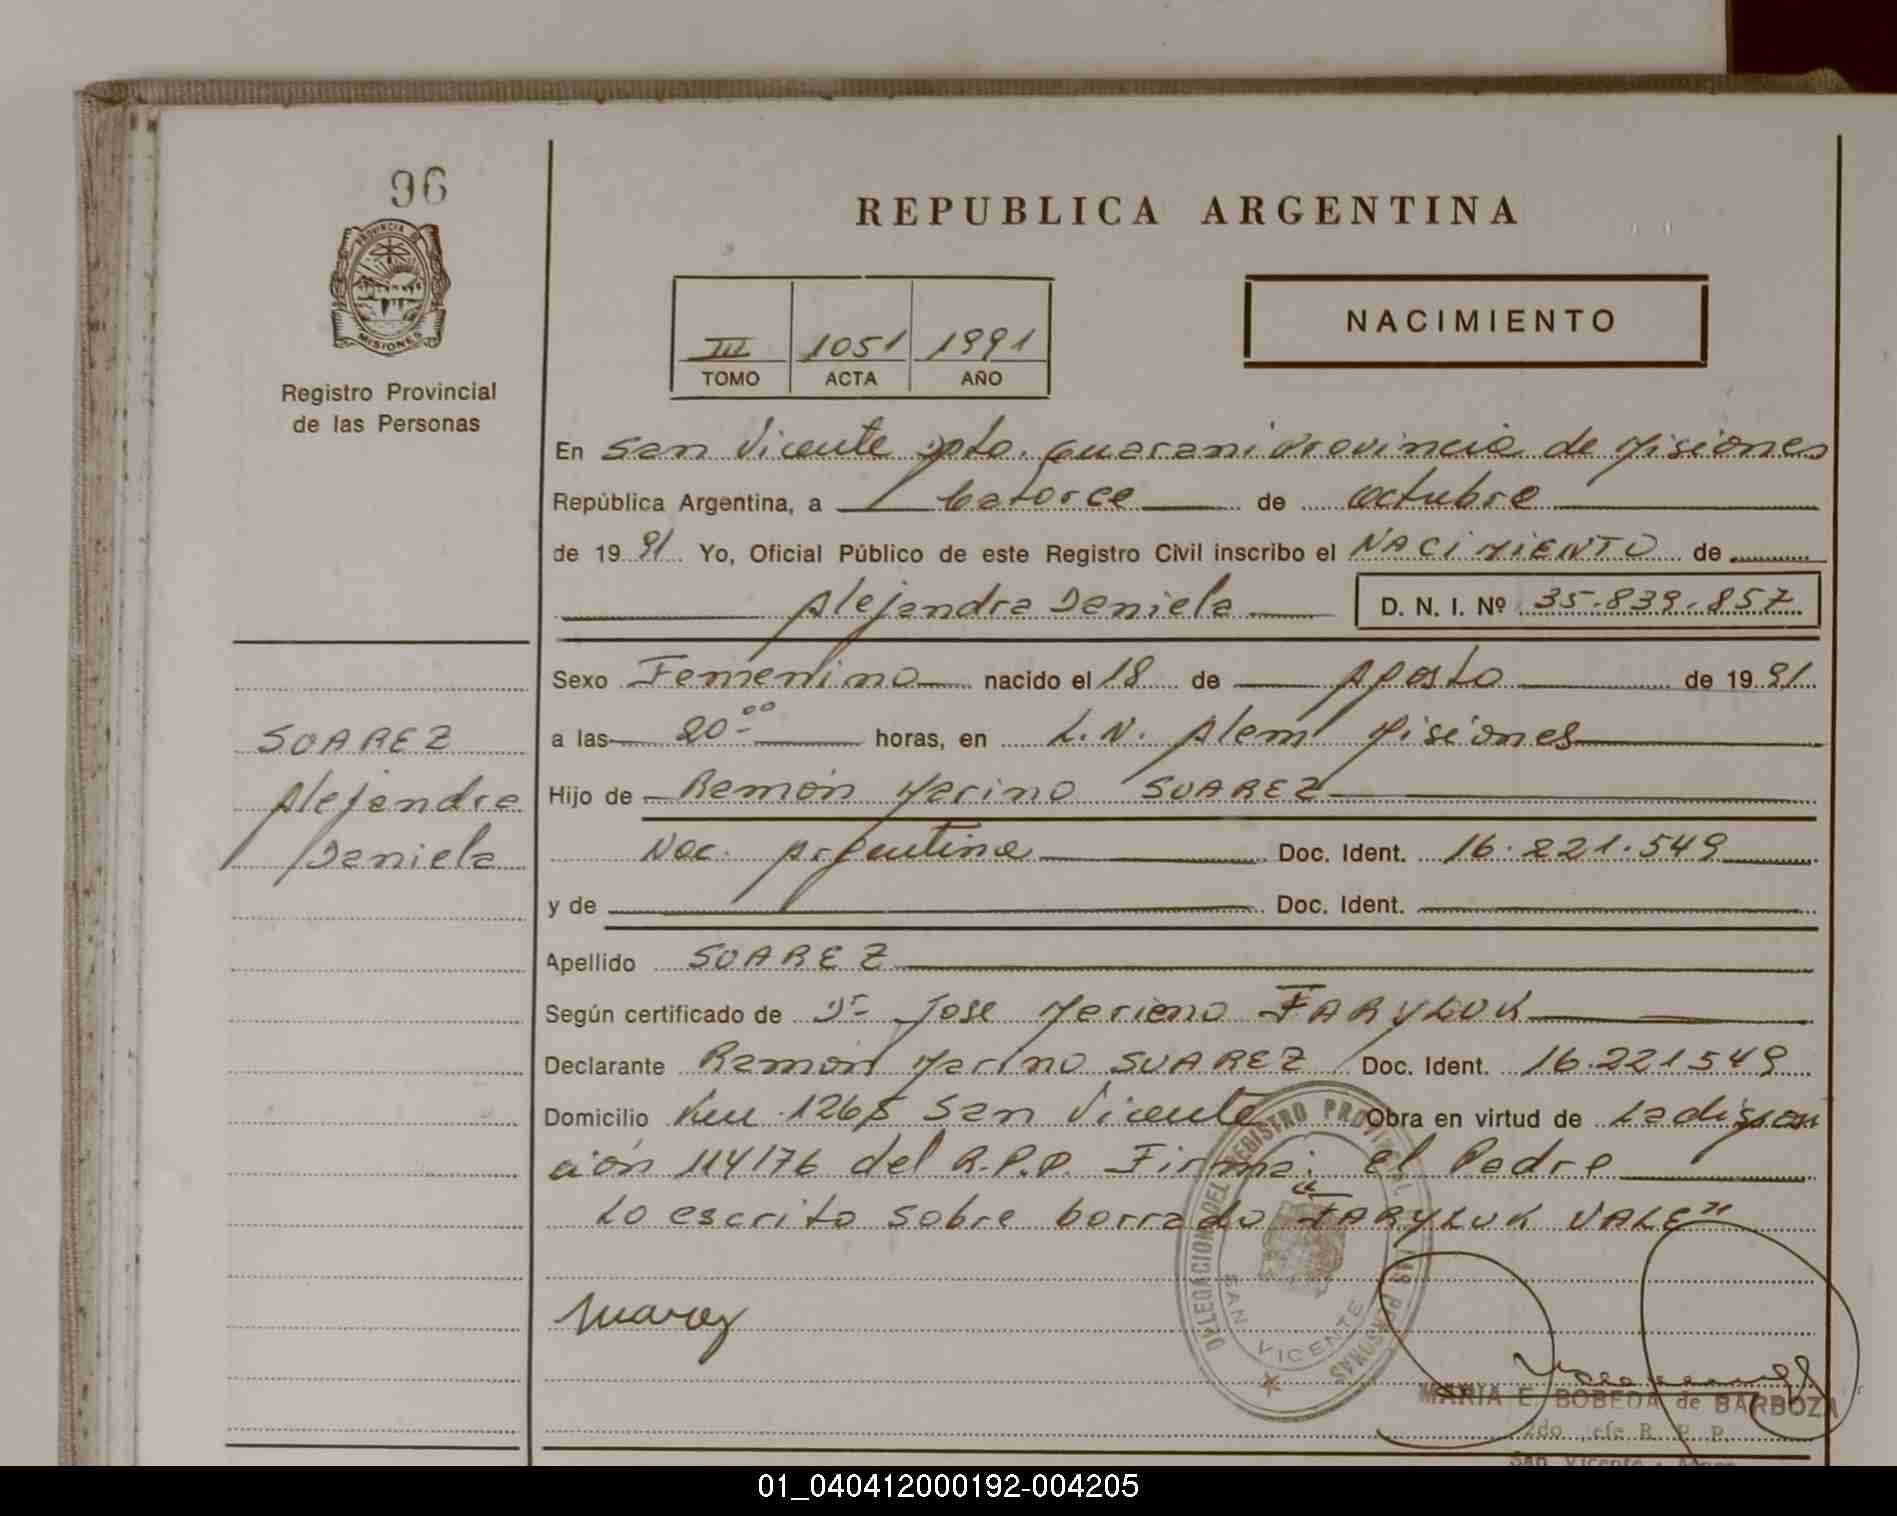 96
PROVINCIA DE
MISIONES
Registro Provincial
de las Personas
SUAREZ
Alejandra
Daniela
REPUBLICA ARGENTINA
III 1051 1991
TOMO ACTA AÑO
NACIMIENTO
En San Vicente Dpto. Guarani Provincia de Misiones
República Argentina, a Catorce de octubre
de 19 91 Yo, Oficial Público de este Registro Civil inscribo el NACIMIENTO de
Alejandra Daniela D. N. I. Nº 35.839.857
Sexo Femenino nacido el 18 de Agosto de 19 91
a las 20:00 horas, en L.N. Alem Misiones
Hijo de Ramón Marino SUAREZ
Nac. Argentina Doc. Ident. 16.221.549
y de Doc. Ident.
Apellido SUAREZ
Según certificado de Dr Jose Mariano FARYLUK
Declarante Ramón Marino SUAREZ Doc. Ident. 16.221549
Domicilio Km 1265 San Vicente Obra en virtud de La disposi
ción 114/76 del R.P.P. Firma: el Padre
Lo escrito sobre borrado "FARYLUK VALE"
DELEGACION DEL REGISTRO PROVINCIAL DE LAS PERSONAS
SAN VICENTE
MARIA E. BOBEDA de BARBOZA
2do Jefe R. P. P.
San Vicente
01_040412000192-004205